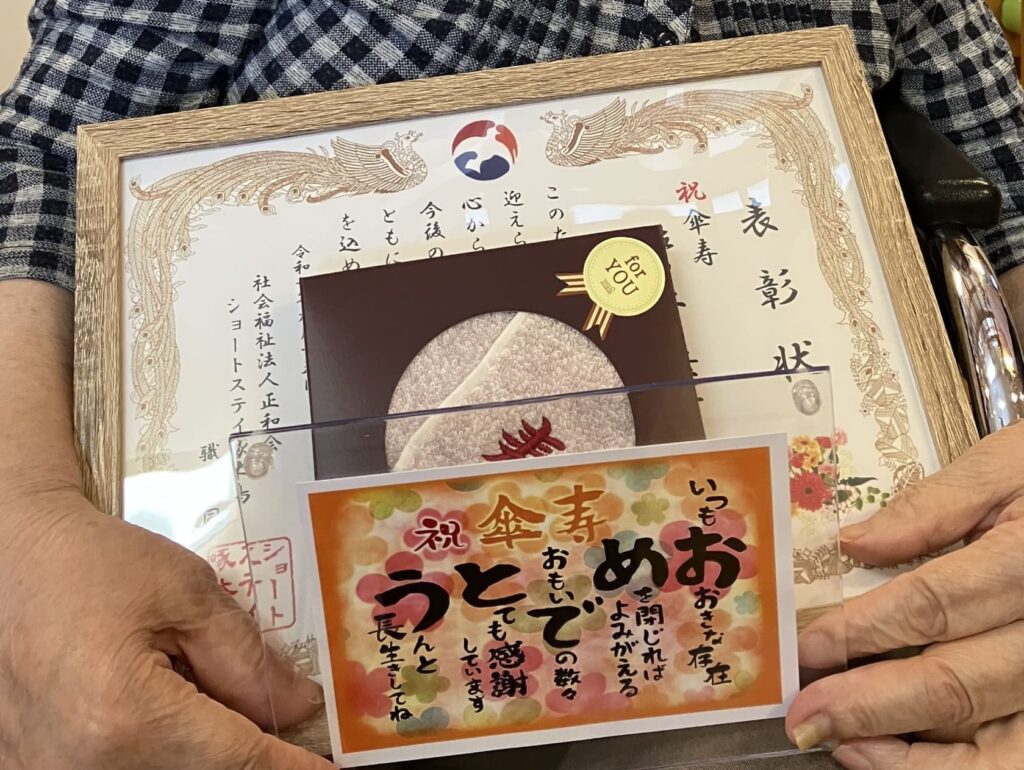 表彰状
祝 傘寿
このた
迎えら
心から
今後の
ともに
を込め
令和
社会福祉法人正和会
ショートステイ
職
ショート
ステイ
for
YOU
祝 傘寿
いつも
おおきな存在
めを閉じれば
よみがえる
おもい
での数々
とても感謝
しています
うんと
長生きしてね